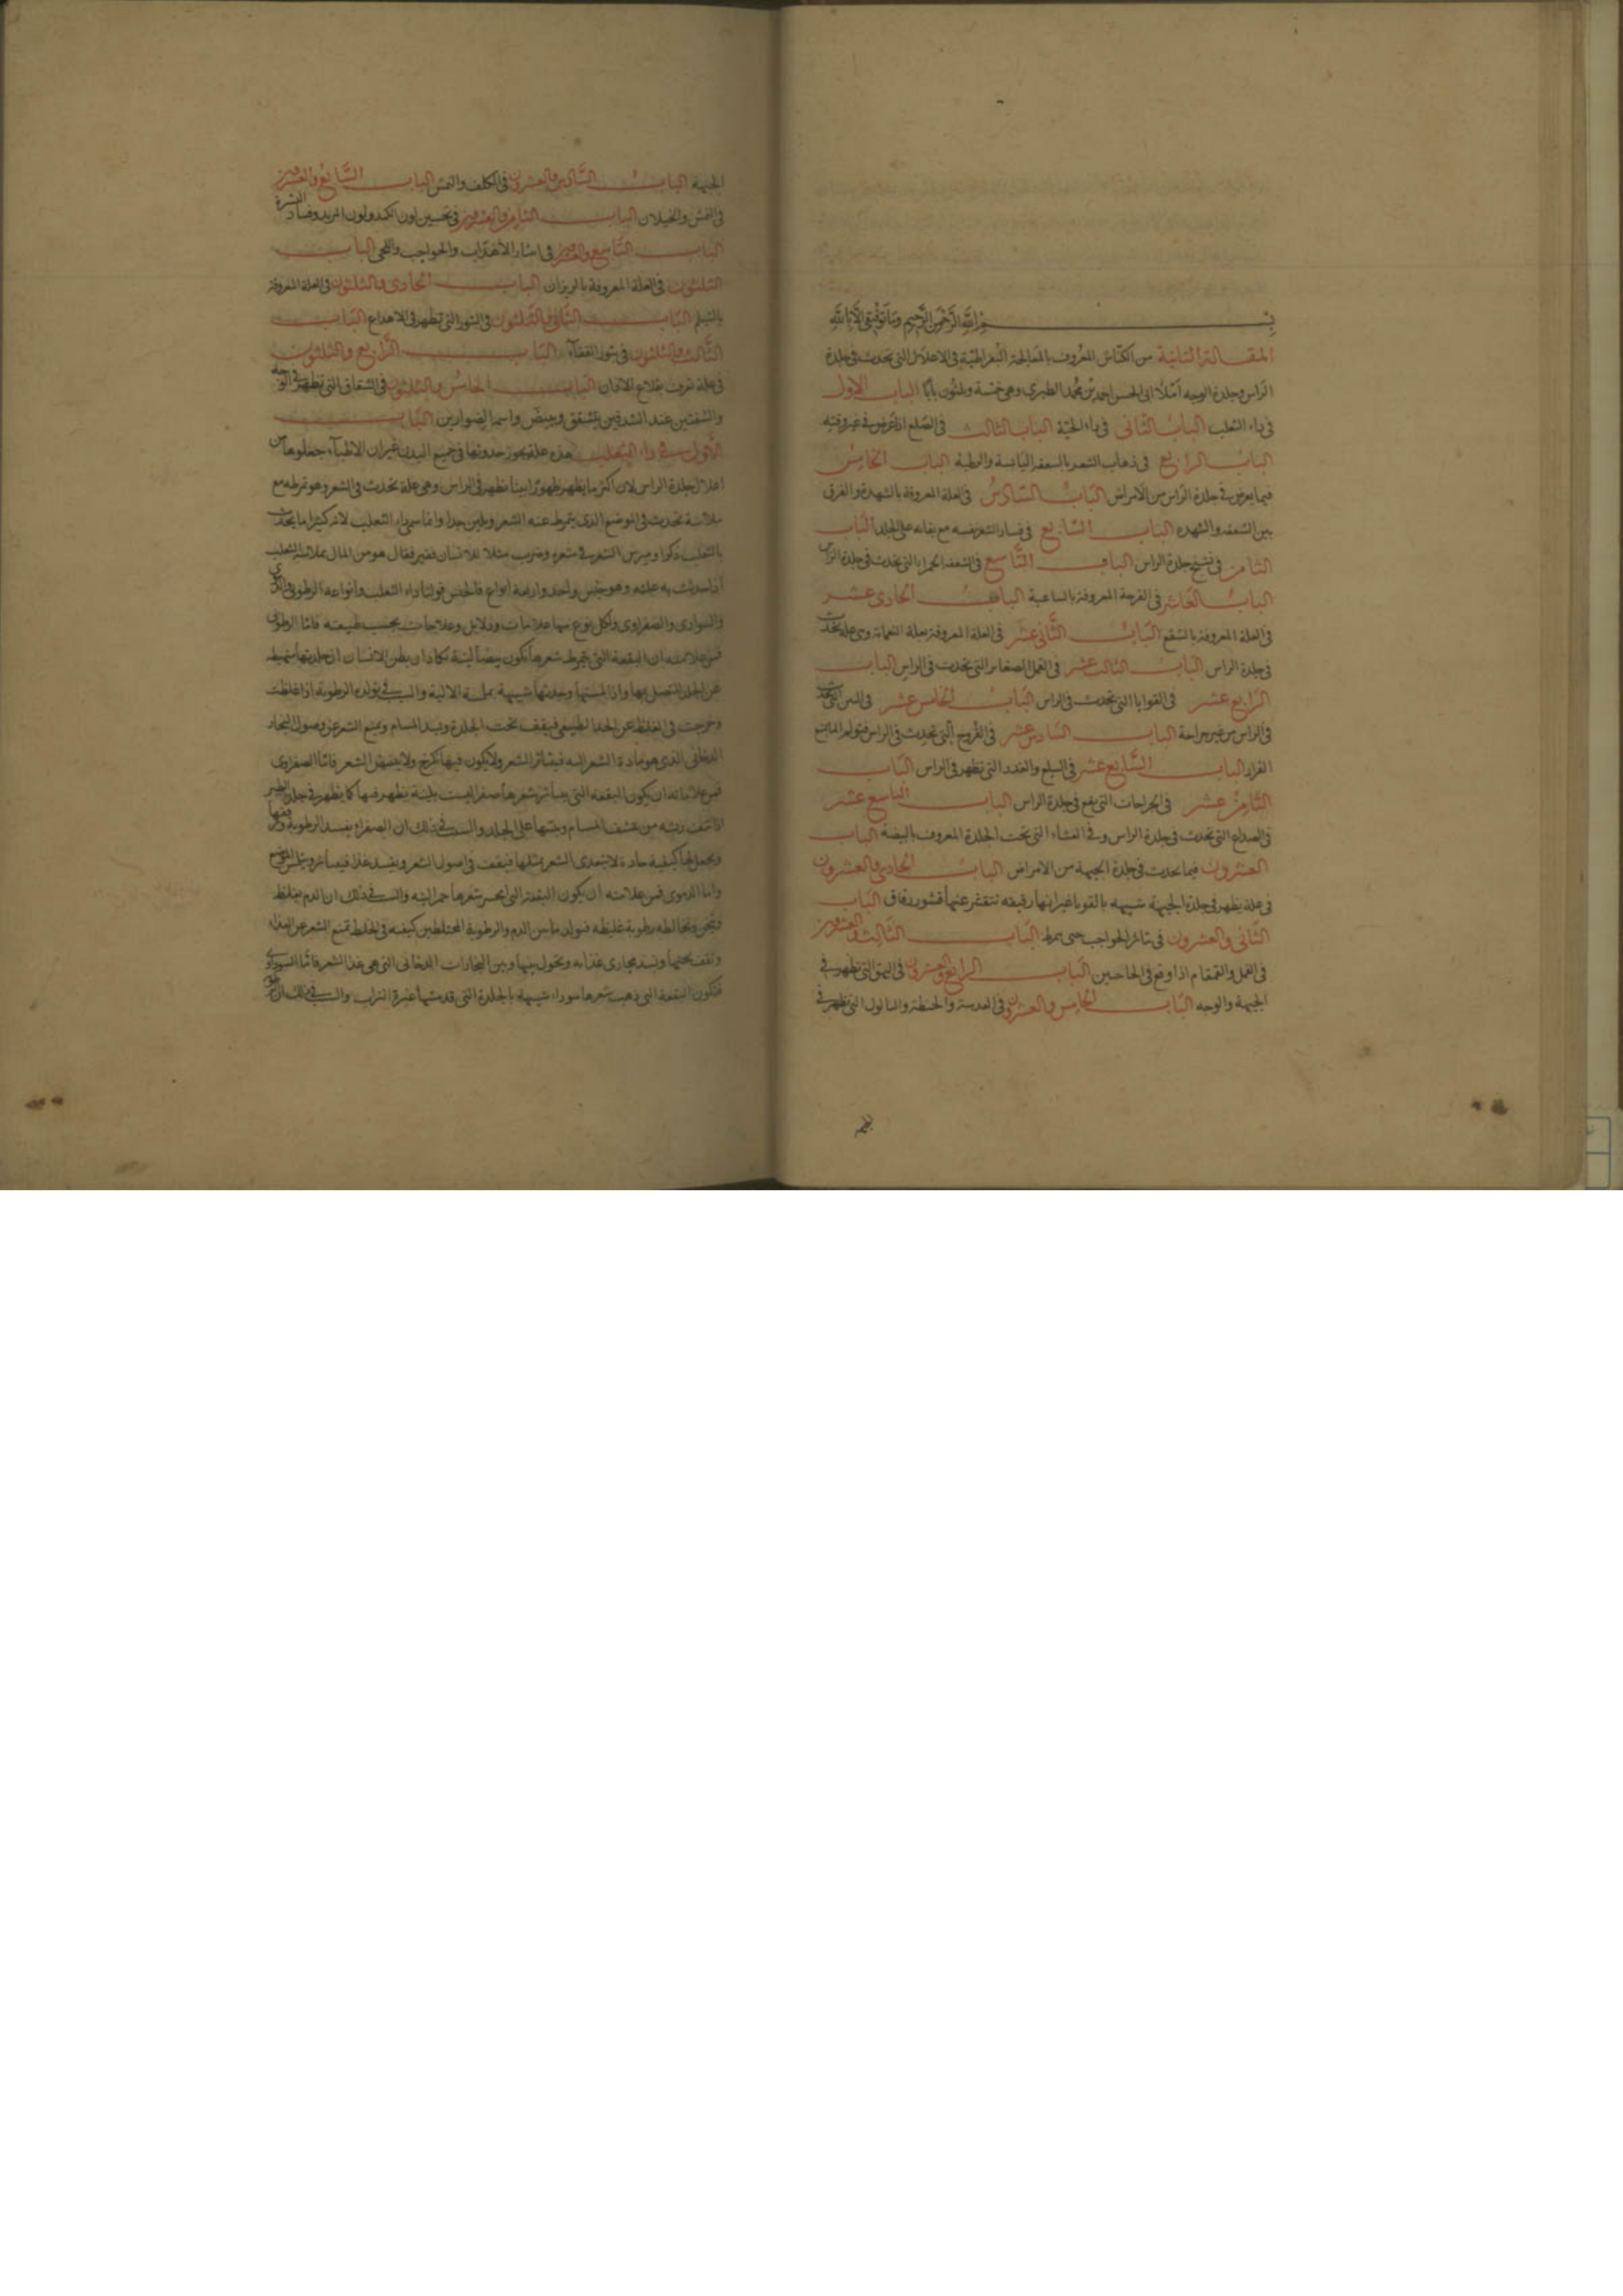 بسم الله الرحمن الرحيم وما توفيقي الا بالله
المقالة الثانية من الكناش المعروف بالمعالجة البقراطية في الاعلال التي تحدث في جلدة
الراس وجلدة الوجه املاء ابي الحسن احمد بن محمد الطبري وهي خمسة وثلثون بابا الباب الاول
في داء الثعلب الباب الثاني في داء الحية الباب الثالث في الصلع اذا عرض في غير وقته
الباب الرابع في ذهاب الشعر بالسعفة اليابسة والرطبة الباب الخامس
فيما يعرض في جلدة الراس من الامراض الباب السادس في العلة المعروفة بالشهدة والفرق
بين السعفه والشهده الباب السابع في فساد الشعر نفسه مع بقائه على الجلد الباب
الثامن في تشنج جلدة الراس الباب التاسع في السعفة الحمراء التي تحدث في جلدة الراس
الباب العاشر في القرحة المعروفة بالساعية الباب الحادى عشر
في العلة المعروفة بالشقع الباب الثاني عشر في العلة المعروفة بعلة النعامة وهي علة تحدث
في جلدة الراس الباب الثالث عشر في القمل الصغار التي تحدث في الراس الباب
الرابع عشر في القوابا التي تحدث في الراس الباب الخامس عشر في التي تحدث
في الراس من غير جراحة الباب السادس عشر في القروح التي تحدث في الراس
القراد الباب السابع عشر في السلع والغدد التي تظهر في الراس الباب
الثامن عشر في الجراحات التي يقع في جلدة الراس الباب التاسع عشر
في الصداع التي تحدث في جلدة الراس وفي الغشاء التي تحت الجلدة المعروف بالبيضة الباب
العشرون فيما يحدث في جلدة الجبهة من الامراض الباب الحادي والعشرون
في علة يظهر في جلدة الجبهة شبيهه بالقوبا غير انها رقيقه تتقشر عنها قشور دقاق الباب
الثاني والعشرون في تناثر الحواجب حتى يمرط الباب الثالث والعشرون
في القمل والقمقام اذا وقع في الحاجبين الباب الرابع والعشرون في البهق التي تظهر في
الجبهة والوجه الباب الخامس والعشرون في العدسة والحنطة والثالول التي تظهر في
الجبهة الباب السادس والعشرون في الكلف والنمش الباب السابع والعشرون
في النمش والخيلان الباب الثامن والعشرون في تحسين لون الكمد ولون وفساد البشرة
الباب التاسع والعشرون في انتثار الاهداب والحواجب واللحى الباب
الثلثون في العلة المعروفة الباب الحادى والثلثون في العلة المعروفة
الباب الثاني والثلثون في البثور التي تظهر في الاصداغ الباب
الثالث والثلثون في بثور القفاء الباب الرابع والثلثون
في علة تعرف بقلاع الاذان الباب الخامس والثلثون في الشقاق التي تظهر في الوجه
والشفتين عند الشدقين يتشقق ويبيض واسمها الصوارين الباب
الاول في داء الثعلب هذه علة يجوز حدوثها في جميع البدن غير ان الاطباء جعلوها من
اعلال جلدة الراس لان اكثر ما يظهر ظهورا بينا تظهر في الراس وهي علة تحدث في الشعر وهو تمرطه مع
ملاسة تحدث في الموضع الذي يتمرط عنه الشعر ويلين جدا وانما سمي داء الثعلب لانه كثيرا ما يحدث
بالثعلب ذكروا الشعر وضرب مثلا للانسان فقير فقال هو من المال بملاسة الثعلب
وهو جنس واحد واربعة انواع فالجنس قولنا داء الثعلب وانواعه الرطوبي والدموي
والسوداوى والصفراوى ولكل نوع منها علامات ودلايل وعلاجات بحسب طبيعته فاما الرطوبي
فمن علامته ان البقعة التي يتمرط شعرها تكون بيضا لينة تكاد ان يظن الانسان ان جلدتها
عن الجلد المتصل بها واذا لمستها وجدتها شبيهة الالية والسبب في تولده الرطوبة اذا غلظت
وخرجت في الغلظ عن الحد الطبيعي فيقف تحت الجلدة وتسد المسام وتمنع الشعر عن وصول البخار
الدخاني الذي هو مادة الشعر اليه فيتناثر الشعر ولا يكون فيها الشعر فاما الصفراوى
فمن علاماته ان يكون البقعة التي يتناثر شعرها صفرا ليست بلينة يظهر فيها كما يظهر في جلد الطير
اذا نتف ريشه من المسام على الجلد والسبب في ذلك ان الصفرا يفسد الرطوبة
ويجعل لها كيفية حادة لا يتغذى الشعر بمثلها فيقف في اصول الشعر ويفسد غذاه
واما الدموى فمن علامته ان يكون البقعة التي انحسر شعرها حمرا والسبب في ذلك ان الدم يغلظ
ويخالطه رطوبة غليظه فيولد ما بين الدم والرطوبة المختلطين كيفيه في الخلط تمنع الشعر عن الغذاء
ويقف تحتها وتسد مجارى غذائه ويحول بينها وبين البخارات الدخاني التي هي غذا الشعر فاما السوداوى
فتكون البقعة التي ذهب شعرها سوداء شبيهه بالجلدة التي التراب والسبب في ذلك ان